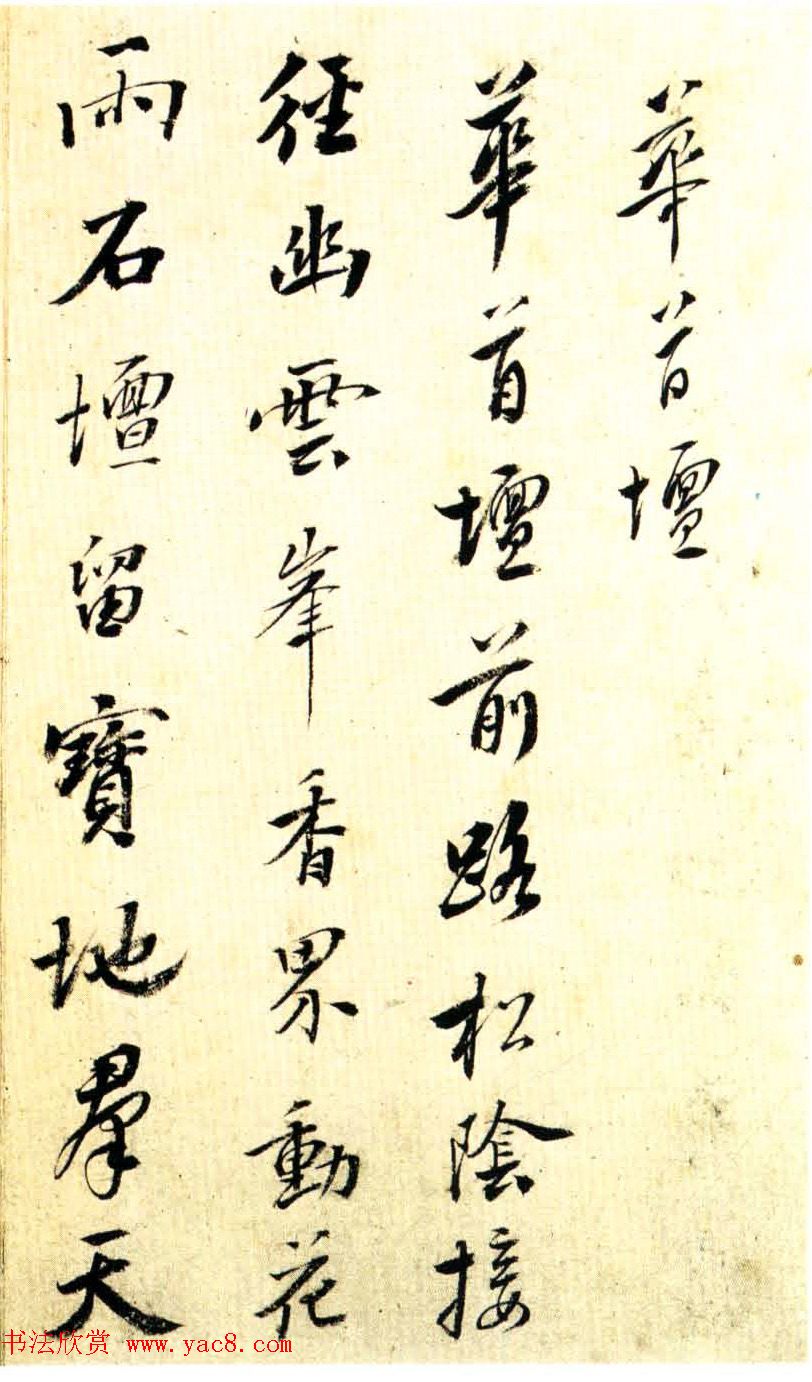 華首壇
華首壇前路松陰接
徑幽雲峯香界動花
雨石壇留寶地羣天
书法欣赏 www.yac8.com